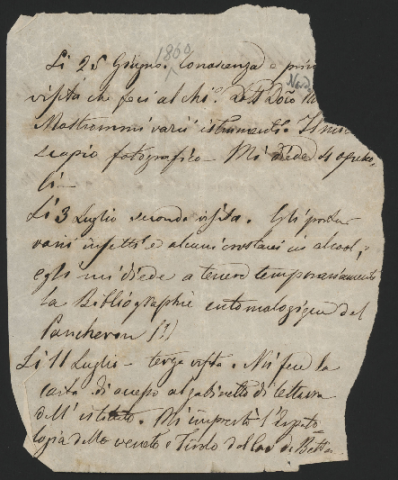 1869
Li 25 Giugno. Conoscenza e prim
visita che feci al chi.º Dott Dořo Nard
Mostrommi varii istrumenti. Il micro
scopio fotografico — Mi diede 4 opuscol
li —
Li 3 Luglio seconda visita. Gli portai
varii insetti e alcuni crostacei in alcool,
egli mi diede a tenere temporariamente
la Bibliographie entomologique del
Percheron (!)
Li 11 Luglio — terza visita. Mi fece la
carta di accesso al gabinetto di lettura
dell' istituto. Mi imprestò l'Erpeto
logia delle venete e Tirolo del Cav de Betta